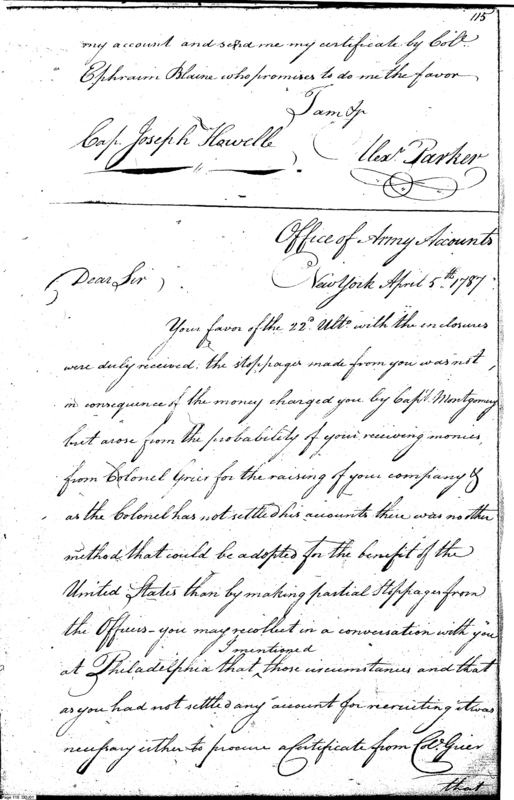 115
my account and send me my certificate by Colo.
Ephraim Blaine who promises to do me the favor
I am &
Cap. Joseph Howelle
Alexr. Parker
Office of Army Accounts
New York April 5th. 1787
Dear Sir
Your favor of the 22d. Ulto. with the enclosures
were duly received, the stoppages made from you was not,
in consequence of the money charged you by Capt. Montgomery
but arose from the probability of your receiving monies,
from Colonel Grier for the raising of your company &
as the Colonel has not settled his accounts there was no other
method that could be adopted for the benefit of the
United States than by making partial Stoppages from
the Officers – you may recollect in a conversation with you
I mentioned
at Philadelphia that those circumstances and that
as you had not settled any account for recruiting it was
necessary either to procure a Certificate from Colo. Grier
that